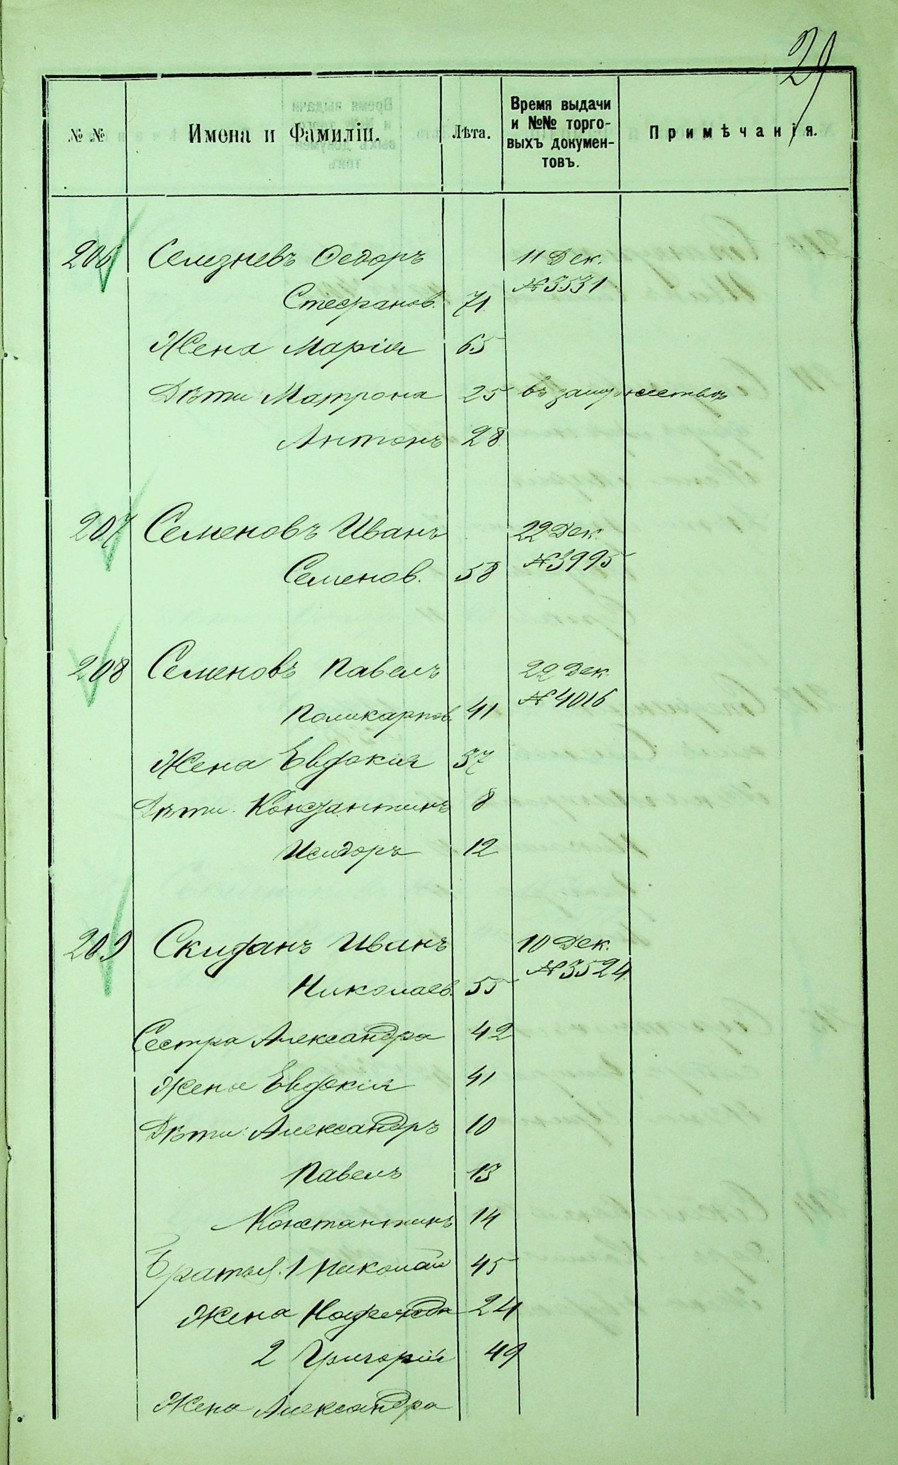 29
№ №
Имена и Фамиліи.
Лѣта.
Время выдачи
и №№ торго-
выхъ докумен-
товъ.
Примѣчанія.
206 Селезневъ Федоръ 11 Дек.
Стефанов. 71 № 3531
Жена Марія 65
Дѣти Матрона 25 въ замужествѣ
Антонъ 28
207 Семеновъ Иванъ 22 Дек.
Семенов. 58 № 3995
208 Семеновъ Павелъ 22 Дек.
Поликарпов. 41 № 4016
Жена Евдокія 37
Дѣти. Константинъ 8
Исидоръ 12
209 Скиданъ Иванъ 10 Дек.
Николаев. 55 № 3524
Сестра Александра 42
Жена Евдокія 41
Дѣти: Александръ 10
Павелъ 13
Константинъ 14
Братья. 1 Николай 45
Жена Надежда 24
2 Григорій 49
Жена Александра